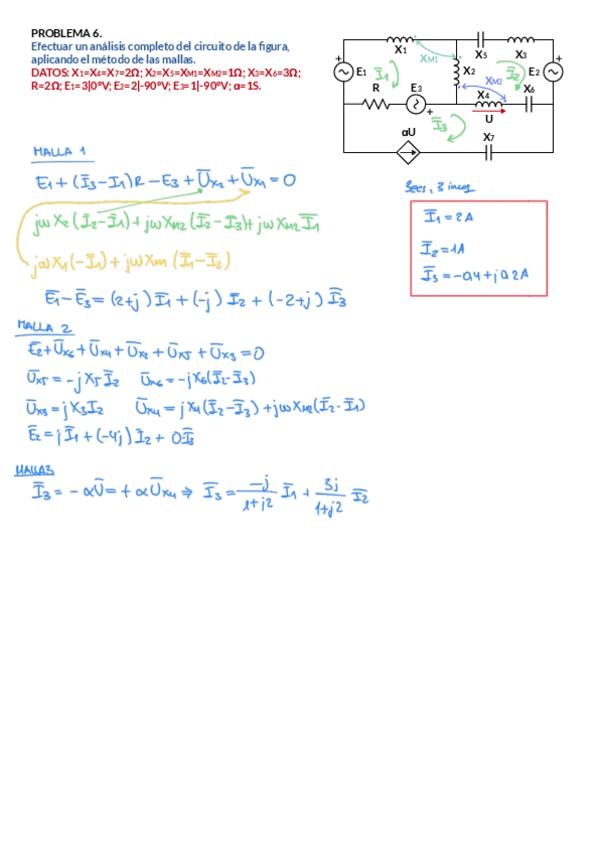 PROBLEMA 6.
Efectuar un análisis completo del circuito de la figura,
aplicando el método de las mallas.
DATOS: X1=X4=X7=2Ω; X2=X5=XM1=XM2=1Ω; X3=X6=3Ω;
R=2Ω; E1=3|0ºV; E2=2|-90ºV; E3=1|-90ºV; α=1S.
X1 X5 X3
XM1
E1 I̅1 X2 I̅2 E2
XM2
R E3 X4 X6
I̅3 U
αU X7
MALLA 1
E1 + (I̅3 - I̅1)R - E3 + U̅x2 + U̅x1 = 0
jωX2(I̅2-I̅1) + jωXM2(I̅2-I̅3)+ jωXM1 I̅1
jωX1(-I̅1) + jωXM1 (I̅1-I̅2)
E̅1 - E̅3 = (2+j) I̅1 + (-j) I̅2 + (-2+j) I̅3
3 ecs, 3 incog
I̅1 = 2A
I̅2 = 1A
I̅3 = -0,4 + j0,2A
MALLA 2
E̅2 + U̅x6 + U̅x4 + U̅x2 + U̅x5 + U̅x3 = 0
U̅x5 = -jX5 I̅2 U̅x6 = -jX6(I̅2-I̅3)
U̅x3 = jX3 I̅2 U̅x4 = jX4(I̅2-I̅3) + jωXM2(I̅2-I̅1)
E̅2 = j I̅1 + (-4j) I̅2 + 0 I̅3
MALLA3
I̅3 = -αU̅ = +αU̅x4 ⇒ I̅3 = -j/1+j2 I̅1 + 3j/1+j2 I̅2